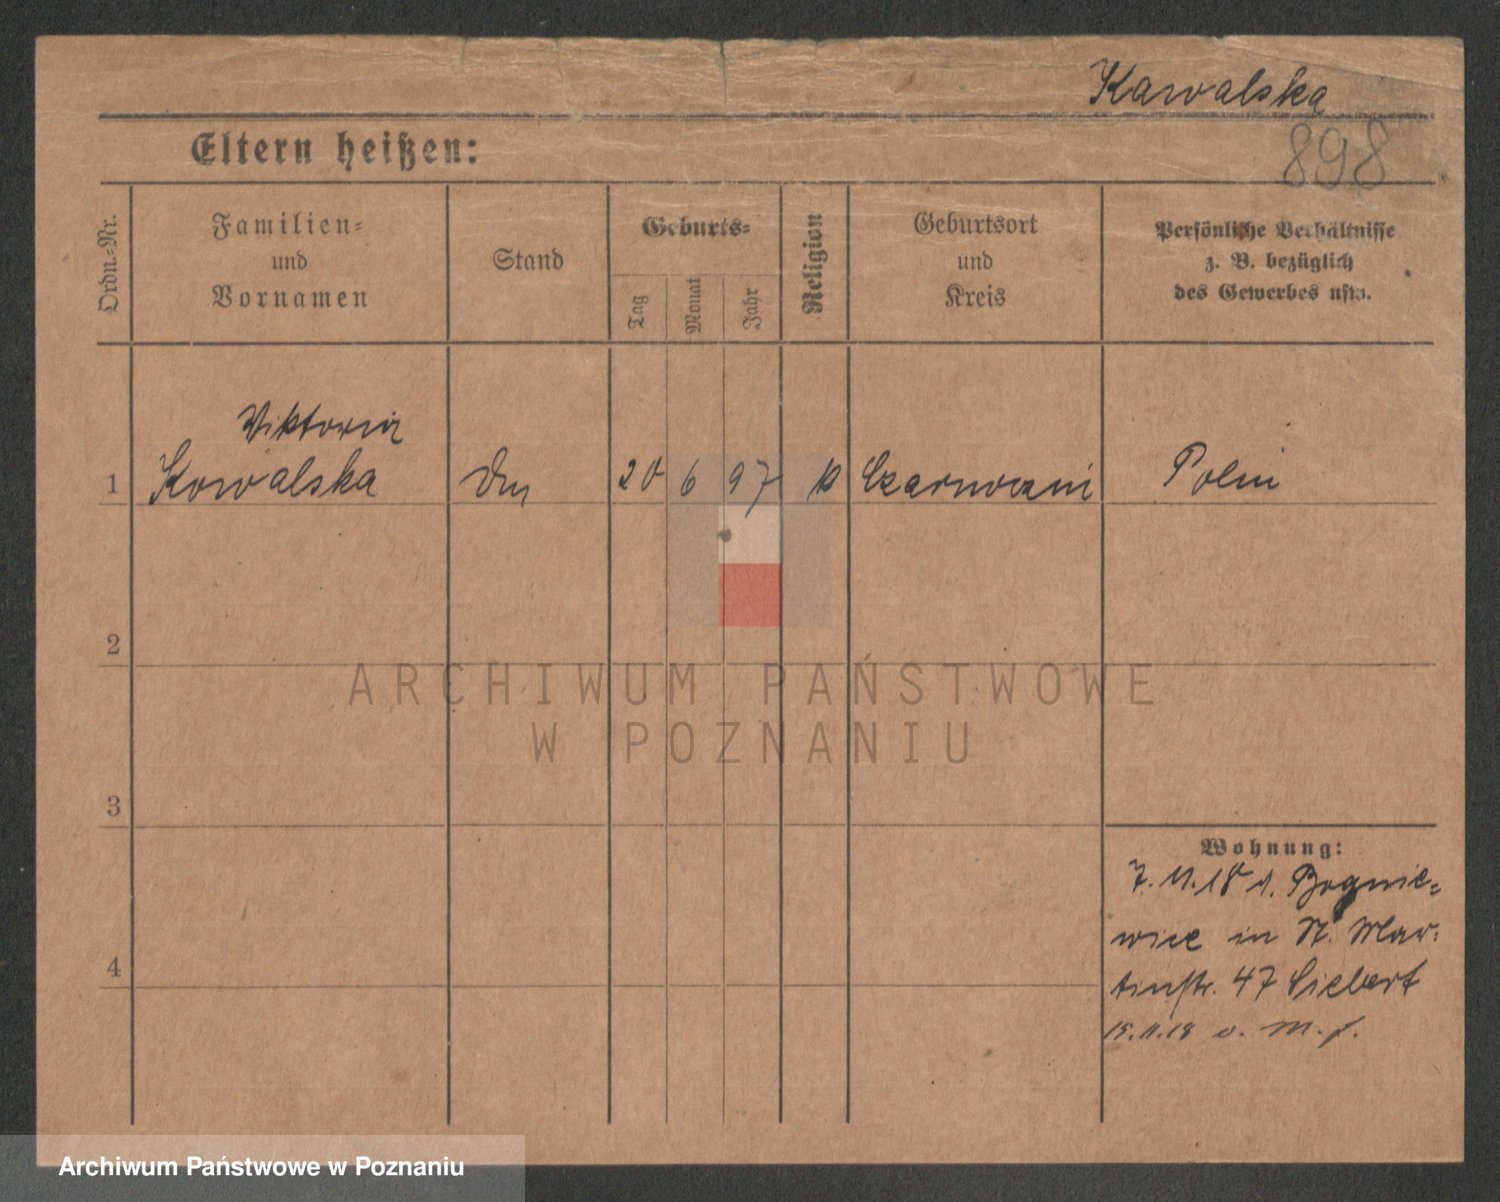 Kawalska
898
Eltern heißen:
Ordn.-Nr.
Familien-
und
Vornamen
Stand
Geburts-
Tag
Monat
Jahr
Religion
Geburtsort
und
Kreis
Persönliche Verhältnisse
z. B. bezüglich
des Gewerbes usw.
Viktoria
1 Kowalska 20 6 97 Polin
2
ARCHIWUM PAŃSTWOWE
W POZNANIU
3
Wohnung:
7.11.18
in St. Mar-
tinstr. 47 Siebert
15.11.18 v. M. f.
4
Archiwum Państwowe w Poznaniu